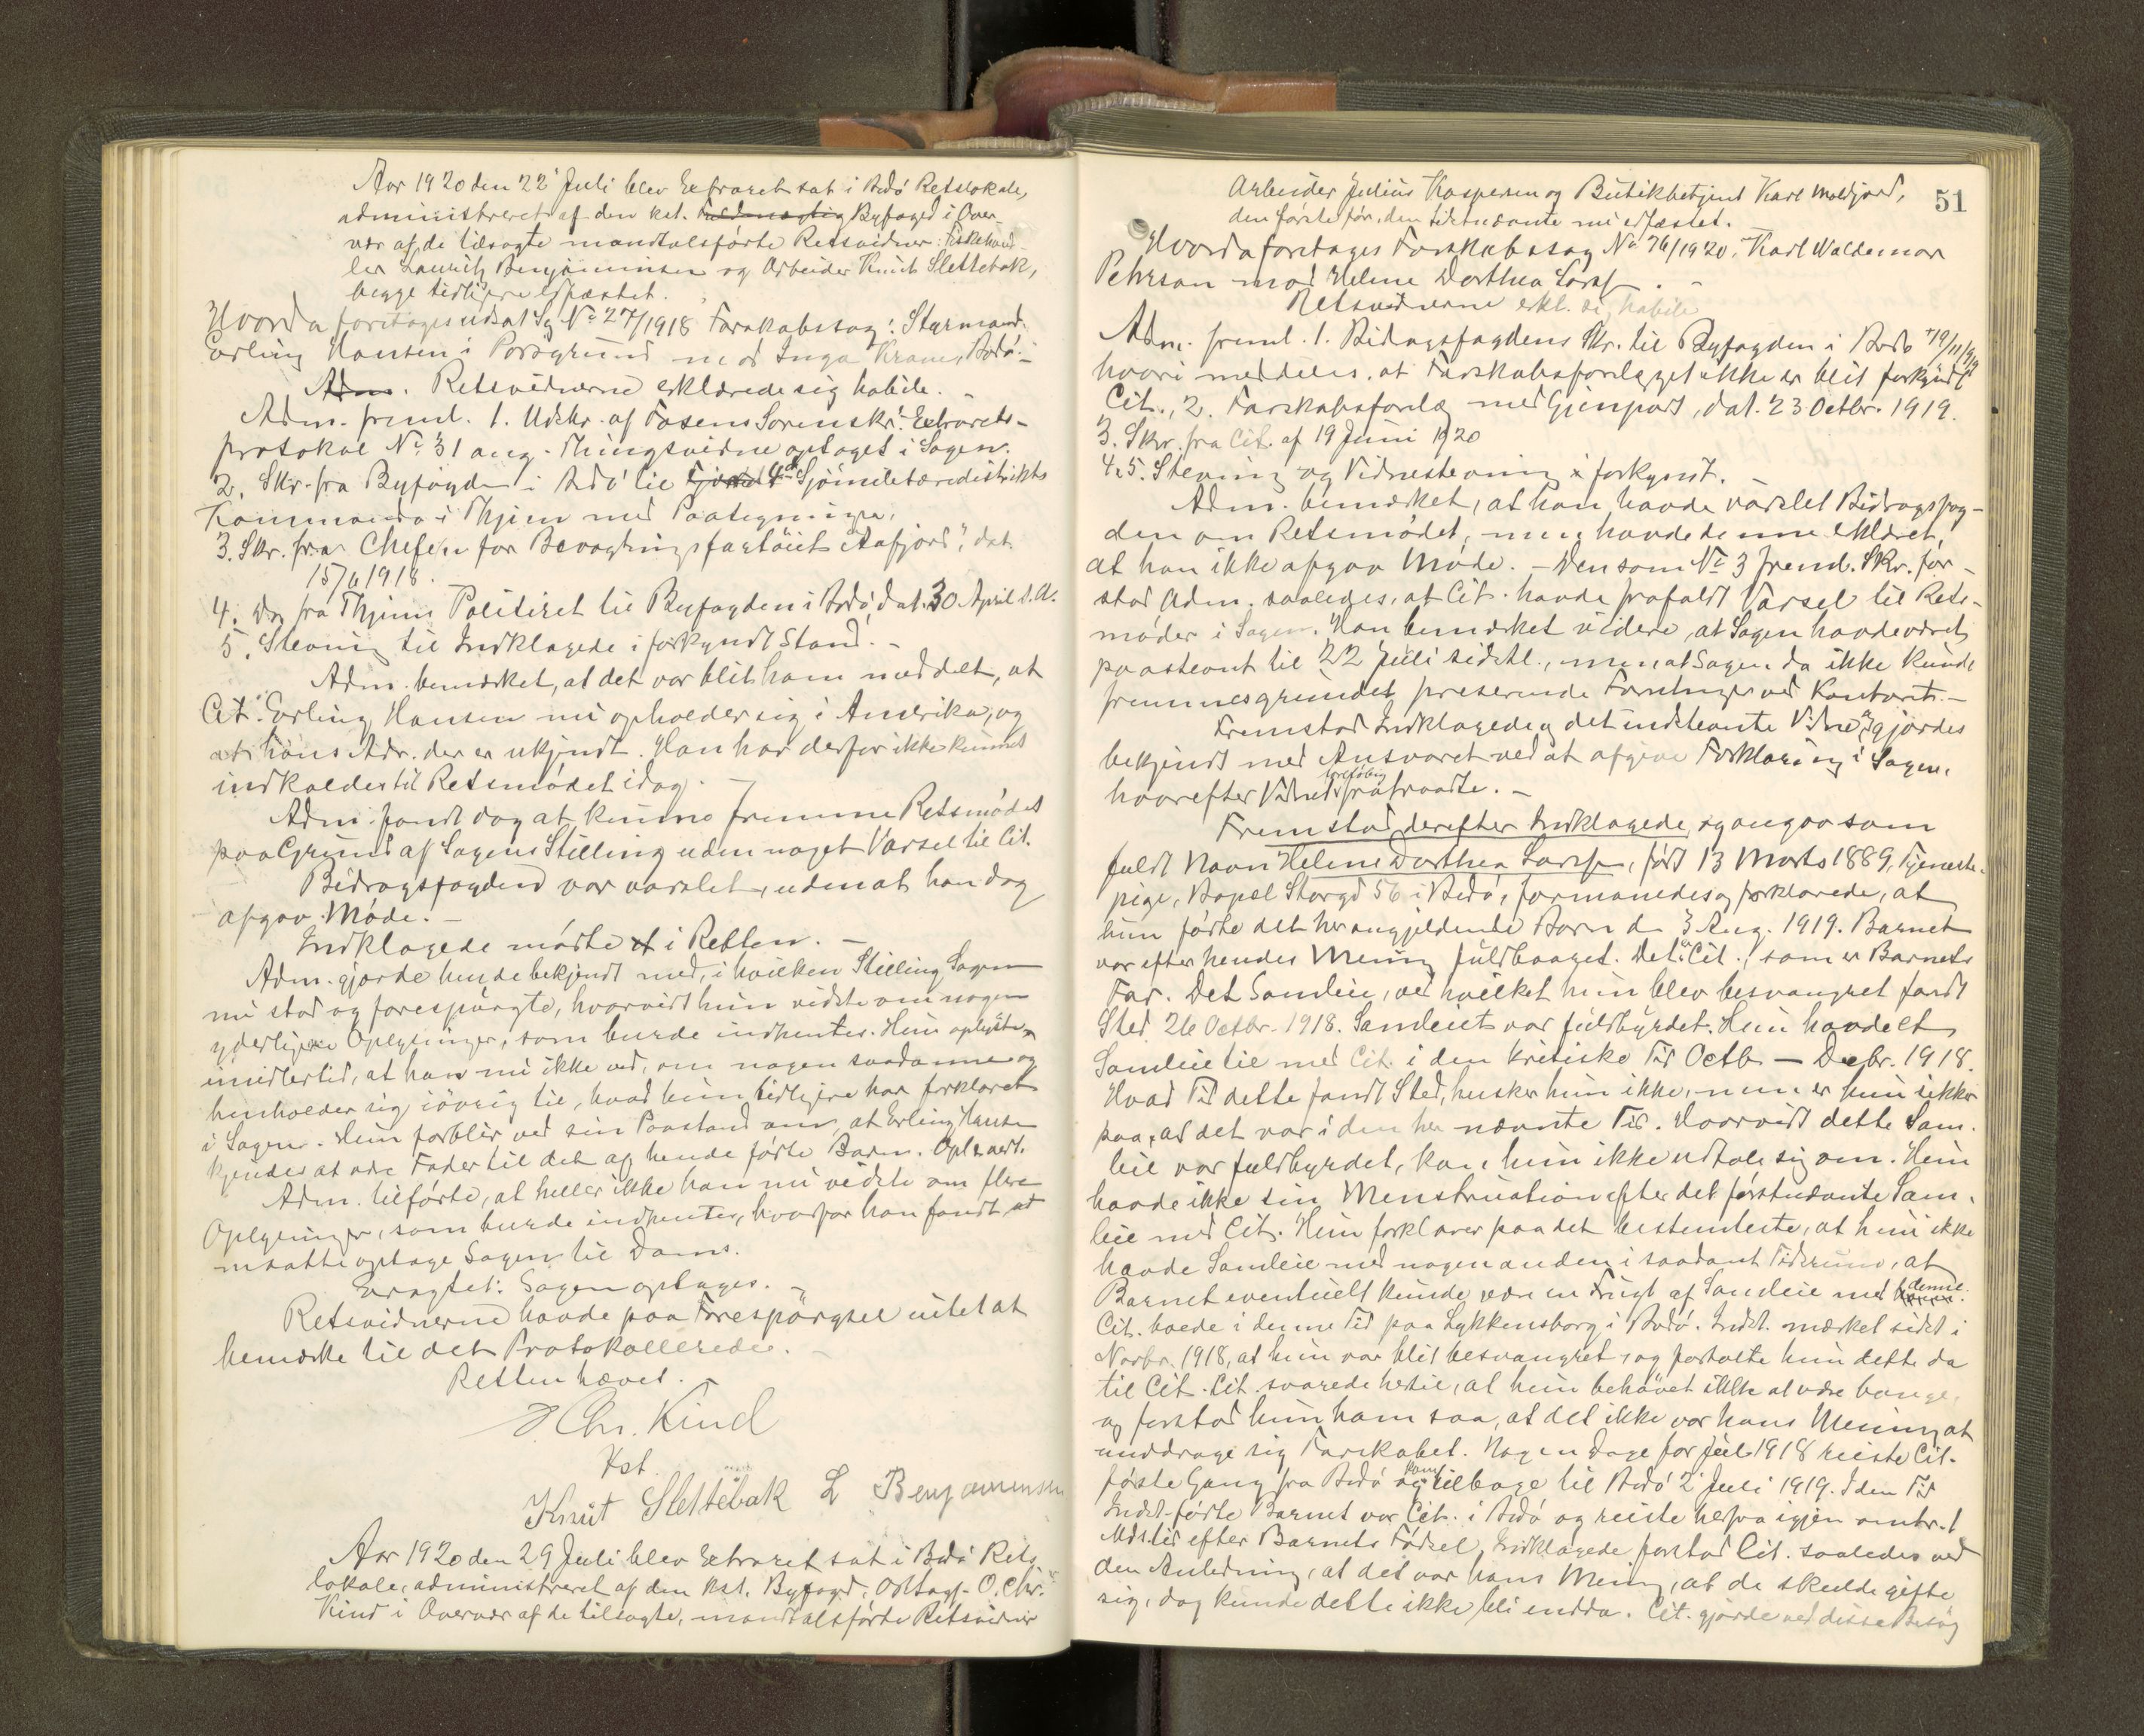 Aar 1920 den 22' Juli blev Extraret sat i Bodö Retslokale,
administreret af den kst. Fuldmægtig Byfoged i Over-
vær af de tilsagte mandtalsførte Retsvidner: Fiskehand-
ler Lauritz Benjaminsen og Arbeider Knut Slettebak,
begge tidligere edfæstet.
Hvorda foretages udsat Sg No 27/1918 Farskabssag: Styrmand
Erling Hansen i Porsgrund mod Inga Krane, Bodö.-
Adm. Retsvidnerne erklærede sig habile.
Adm. freml. 1. Udskr. af Fosens Sorenskr. Extrarets-
protokol No 31 ang. Thingsvidne optaget i Sagen.
2. Skr. fra Byfogden i Bodö til 4de Sjömilitæredistrikts
Kommando i Thjem med Paategninger.
3. Skr. fra Chefen for Bevogtningsfartöiet "Aafjord", dat.
15/6 1918.
4. Do fra Thjems Politiret til Byfogden i Bodö, dat. 30 April d. A.
5. Stevning til Indklagede i forkyndt Stand.-
Adm. bemærket, at det var blit ham meddelt, at
Cit. Erling Hansen nu opholder sig i Amerika, og
at hans Adr. der er ukjendt. Han har derfor ikke kunnet
indkaldes til Retsmödet idag. -
Adm. fandt dog at kunne fremme Retsmödet
paa Grund af Sagens Stilling uden noget Varsel til Cit.
Bidragsfogden var varslet, uden at han dog
afgav Möde. -
Indklagede mödte i Retten. -
Adm. gjorde hende bekjendt med, i hvilken Stilling Sagen
nu stod og forespurgte, hvorvidt hun vidste om nogen
yderligere Oplysninger, som burde indhentes. Hun oplyste
imidlertid, at han nu ikke ved, om nogen saadanne og
henholder sig iövrig til, hvad hun tidligere har forklaret
i Sagen. Hun forblir ved sin Paastand om, at Erling Hansen
kjendes at være Fader til det af hende födte Barn. Opl. vedt.
Adm. tilförte, at heller ikke han nu vidste om flere
Oplysninger, som burde indhentes, hvorfor han fandt at
maatte optage Sagen til Doms.
Eragtet: Sagen optages. -
Retsvidnerne havde paa Forespörgsel intet at
bemærke til det Protokollerede. -
Retten hævet.
O Chr. Kind
Kst.
Knut Slettebak L Benjaminsen
Aar 1920 den 29 Juli blev Extraret sat i Bodö Rets-
lokale, administreret af den kst. Byfoged, O. Chr.
Kind i Overvær af de tilsagte, mandtalsförte Retsvidner
51
Arbeider Julius Kaspersen og Butikbetjent Karl Moldjord,
den förste för, den sidstnævnte nu edfæstet.
Hvorda foretages Farskabssag No 76/1920: Karl Waldemar
Pehrson mod Helene Dorthea Larsen. -
Retsvidnerne erkl. sig habile
Adm. freml. 1. Bidragsfogdens Skr. til Byfogden i Bodö 19/11/1919
hvori meddeles, at Farskabsforelægget ikke er blit forkyndt
Cit., 2. Farskabsforelæg med Gjenpart, dat. 23 Octbr. 1919.
3. Skr. fra Cit. af 19 Juni 1920
4 & 5. Stevning og Vidnestevning i forkynst.
Adm. bemærket, at han havde varslet Bidragsfog-
den om Retsmödet, men havde denne erklæret,
at han ikke afgav Möde. - Den som No 3 freml. Skr. for-
stod Adm. saaledes, at Cit. havde frafaldt Varsel til Rets-
möder i Sagen. Han bemærket videre, at Sagen havde været
paastevnt til 22 Juli sidstl., men at Sagen da ikke kunde
fremmes grundet preserende Forretninger ved Kontoret. -
Fremstod Indklagede og det indstevnte Vidne og gjordes
bekjendt med Ansvaret ved at afgive Forklaring i Sagen,
hvorefter Vidnet foreløbig fratraadte. -
Fremstod derefter Indklagede, og angav som
fuldt Navn Helene Dorthea Larsen, födt 13 Marts 1889, Tjeneste-
pige, Bopæl Storgd 56 i Bodö, formanedes og forklarede, at
hun födte det heromgjeldende Barn d. 3 Aug. 1919. Barnet
var efter hendes Mening fuldbaaret. Det er Cit., som er Barnets
Far. Det Samleie, ved hvilket hun blev besvangret fandt
Sted 26 Octbr. 1918. Samleiet var fuldbyrdet. Hun havde et
Samleie til med Cit. i den kritiske Tid Octb - Decbr. 1918.
Hvad Tid dette fandt Sted, husker hun ikke, men er hun sikker
paa, at det var i den her nævnte Tid. Hvorvidt dette Sam-
leie var fuldbyrdet, kan hun ikke udtale sig om. Hun
havde ikke sin Menstruation efter det förstnævnte Sam-
leie med Cit. Hun forklarer paa det bestemteste, at hun ikke
havde Samleie med nogen anden i saadant Tidsrum, at
Barnet eventuelt kunde være en Frugt af Samleie med denne.
Cit. boede i denne Tid paa Lykkensborg i Bodö. Indkl. mærket sidst i
Novbr. 1918, at hun var blit besvangret, og fortalte hun dette da
til Cit. Cit. svarede hertil, at hun behövet ikke at være bange,
og forstod hun ham saa, at det ikke var hans Mening at
unddrage sig Farskabet. Nogen Dage for Jul 1918 reiste Cit.
förste Gang fra Bodö og kom tilbage til Bodö 2 Juli 1919. I den Tid
Indkl. födte Barnet var Cit. i Bodö og reiste herfra igjen omtr. 1
Mds. tid efter Barnets Födsel. Indklagede forstod Cit. saaledes ved
den Anledning, at det var hans Mening, at de skulde gifte
sig, dog kunde dette ikke bli endda. Cit. gjorde ved disse Besög